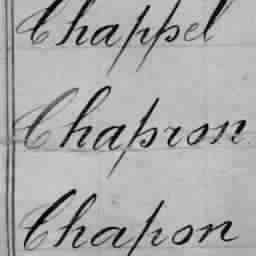 Chappel
Chapron
Chapon